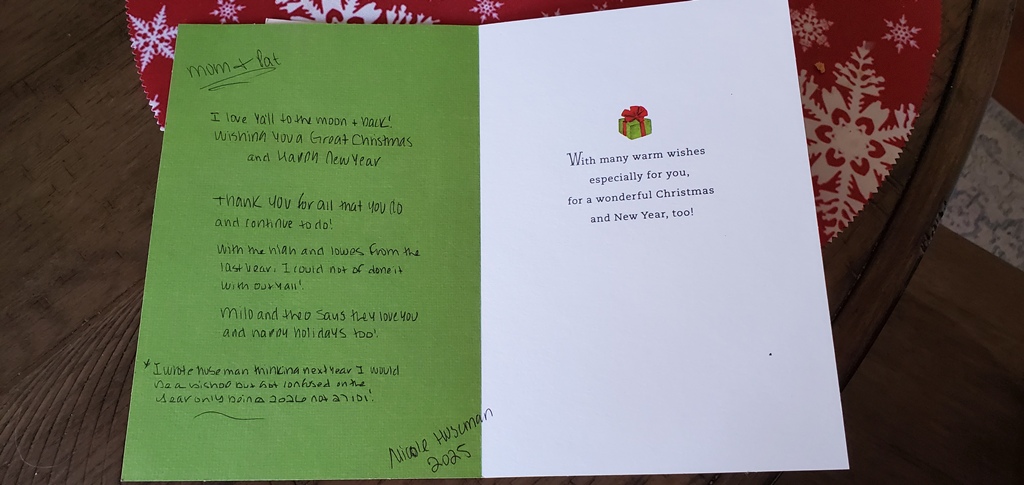 mom + Pat
I love Ya'll to the moon + back!
Wishing You a Great Christmas
and Happy New Year
Thank you for all that you do
and continue to do!
With the high and lowes from the
last year. I could not of done it
with out yall!
Milo and theo says they love you
and happy holidays too!
* I wrote huseman thinking next year I would
be a but got confused on the
year only being a 2026 not 27!
Nicole Huseman
2025
With many warm wishes
especially for you,
for a wonderful Christmas
and New Year, too!